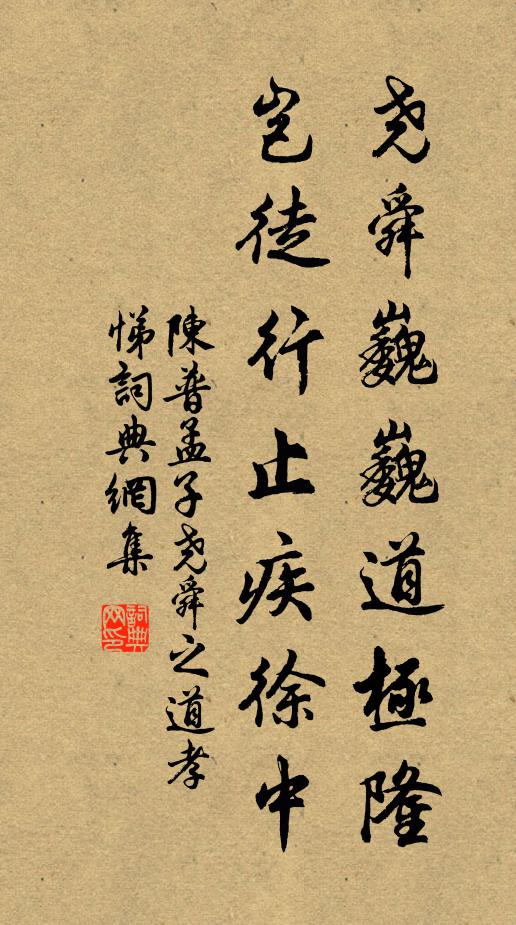 尧舜巍巍道極隆
岂徒行止疾徐中
陳普孟子尧舜之道孝
悌詞典網集
詞典
网印